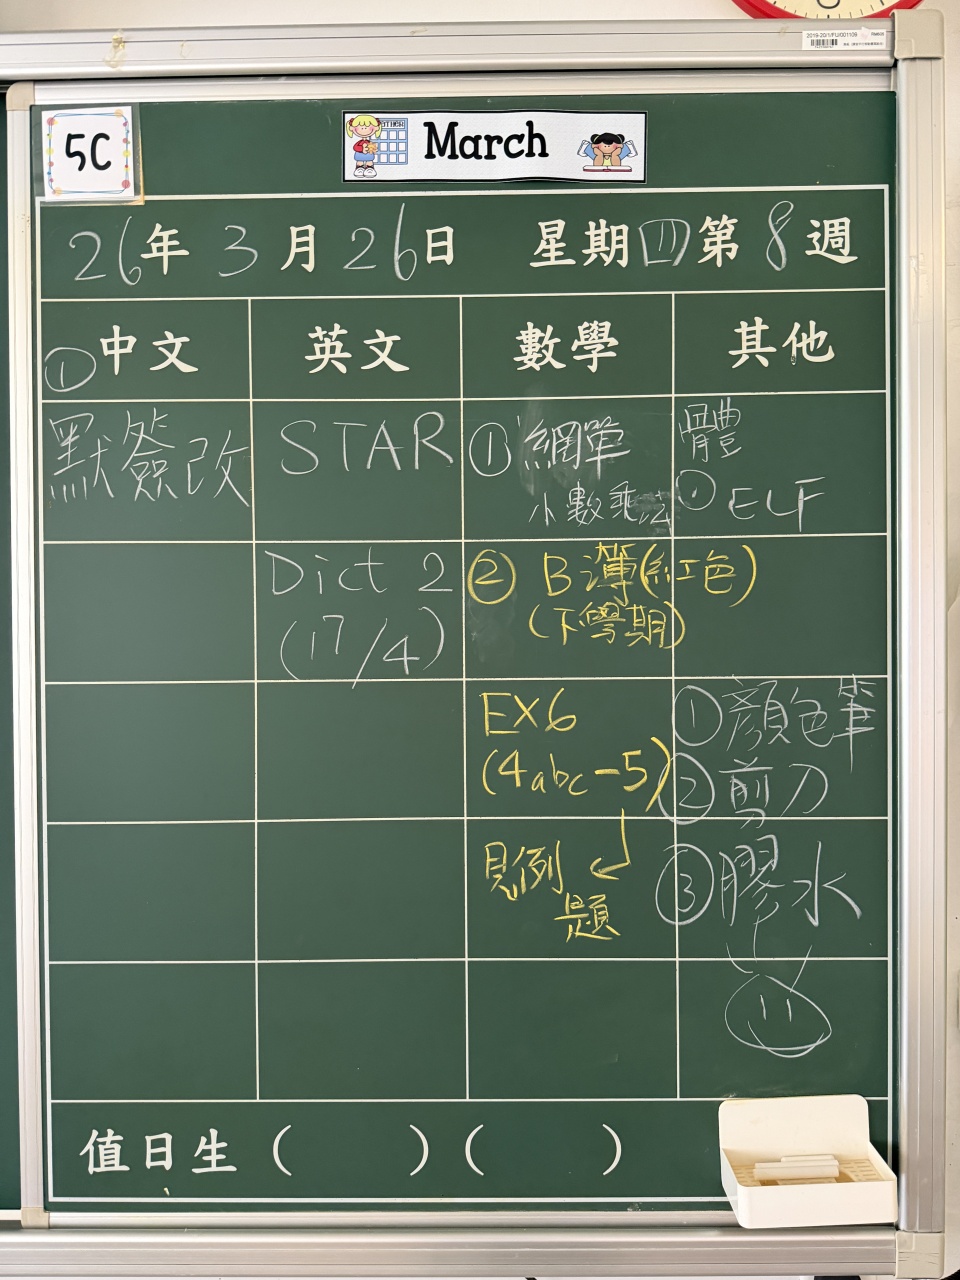 2019-20/1/FU/001109
5C
March
26年 3月 26日 星期四 第8週
① 中文
英文
數學
其他
默簽改
STAR
Dict 2
(17/4)
① 網單
小數乘法
② B簿(紅色)
(下學期)
EX6
(4abc-5)
見例
題
體
① ELF
① 顏色筆
② 剪刀
③ 膠水
值日生 ( ) ( )